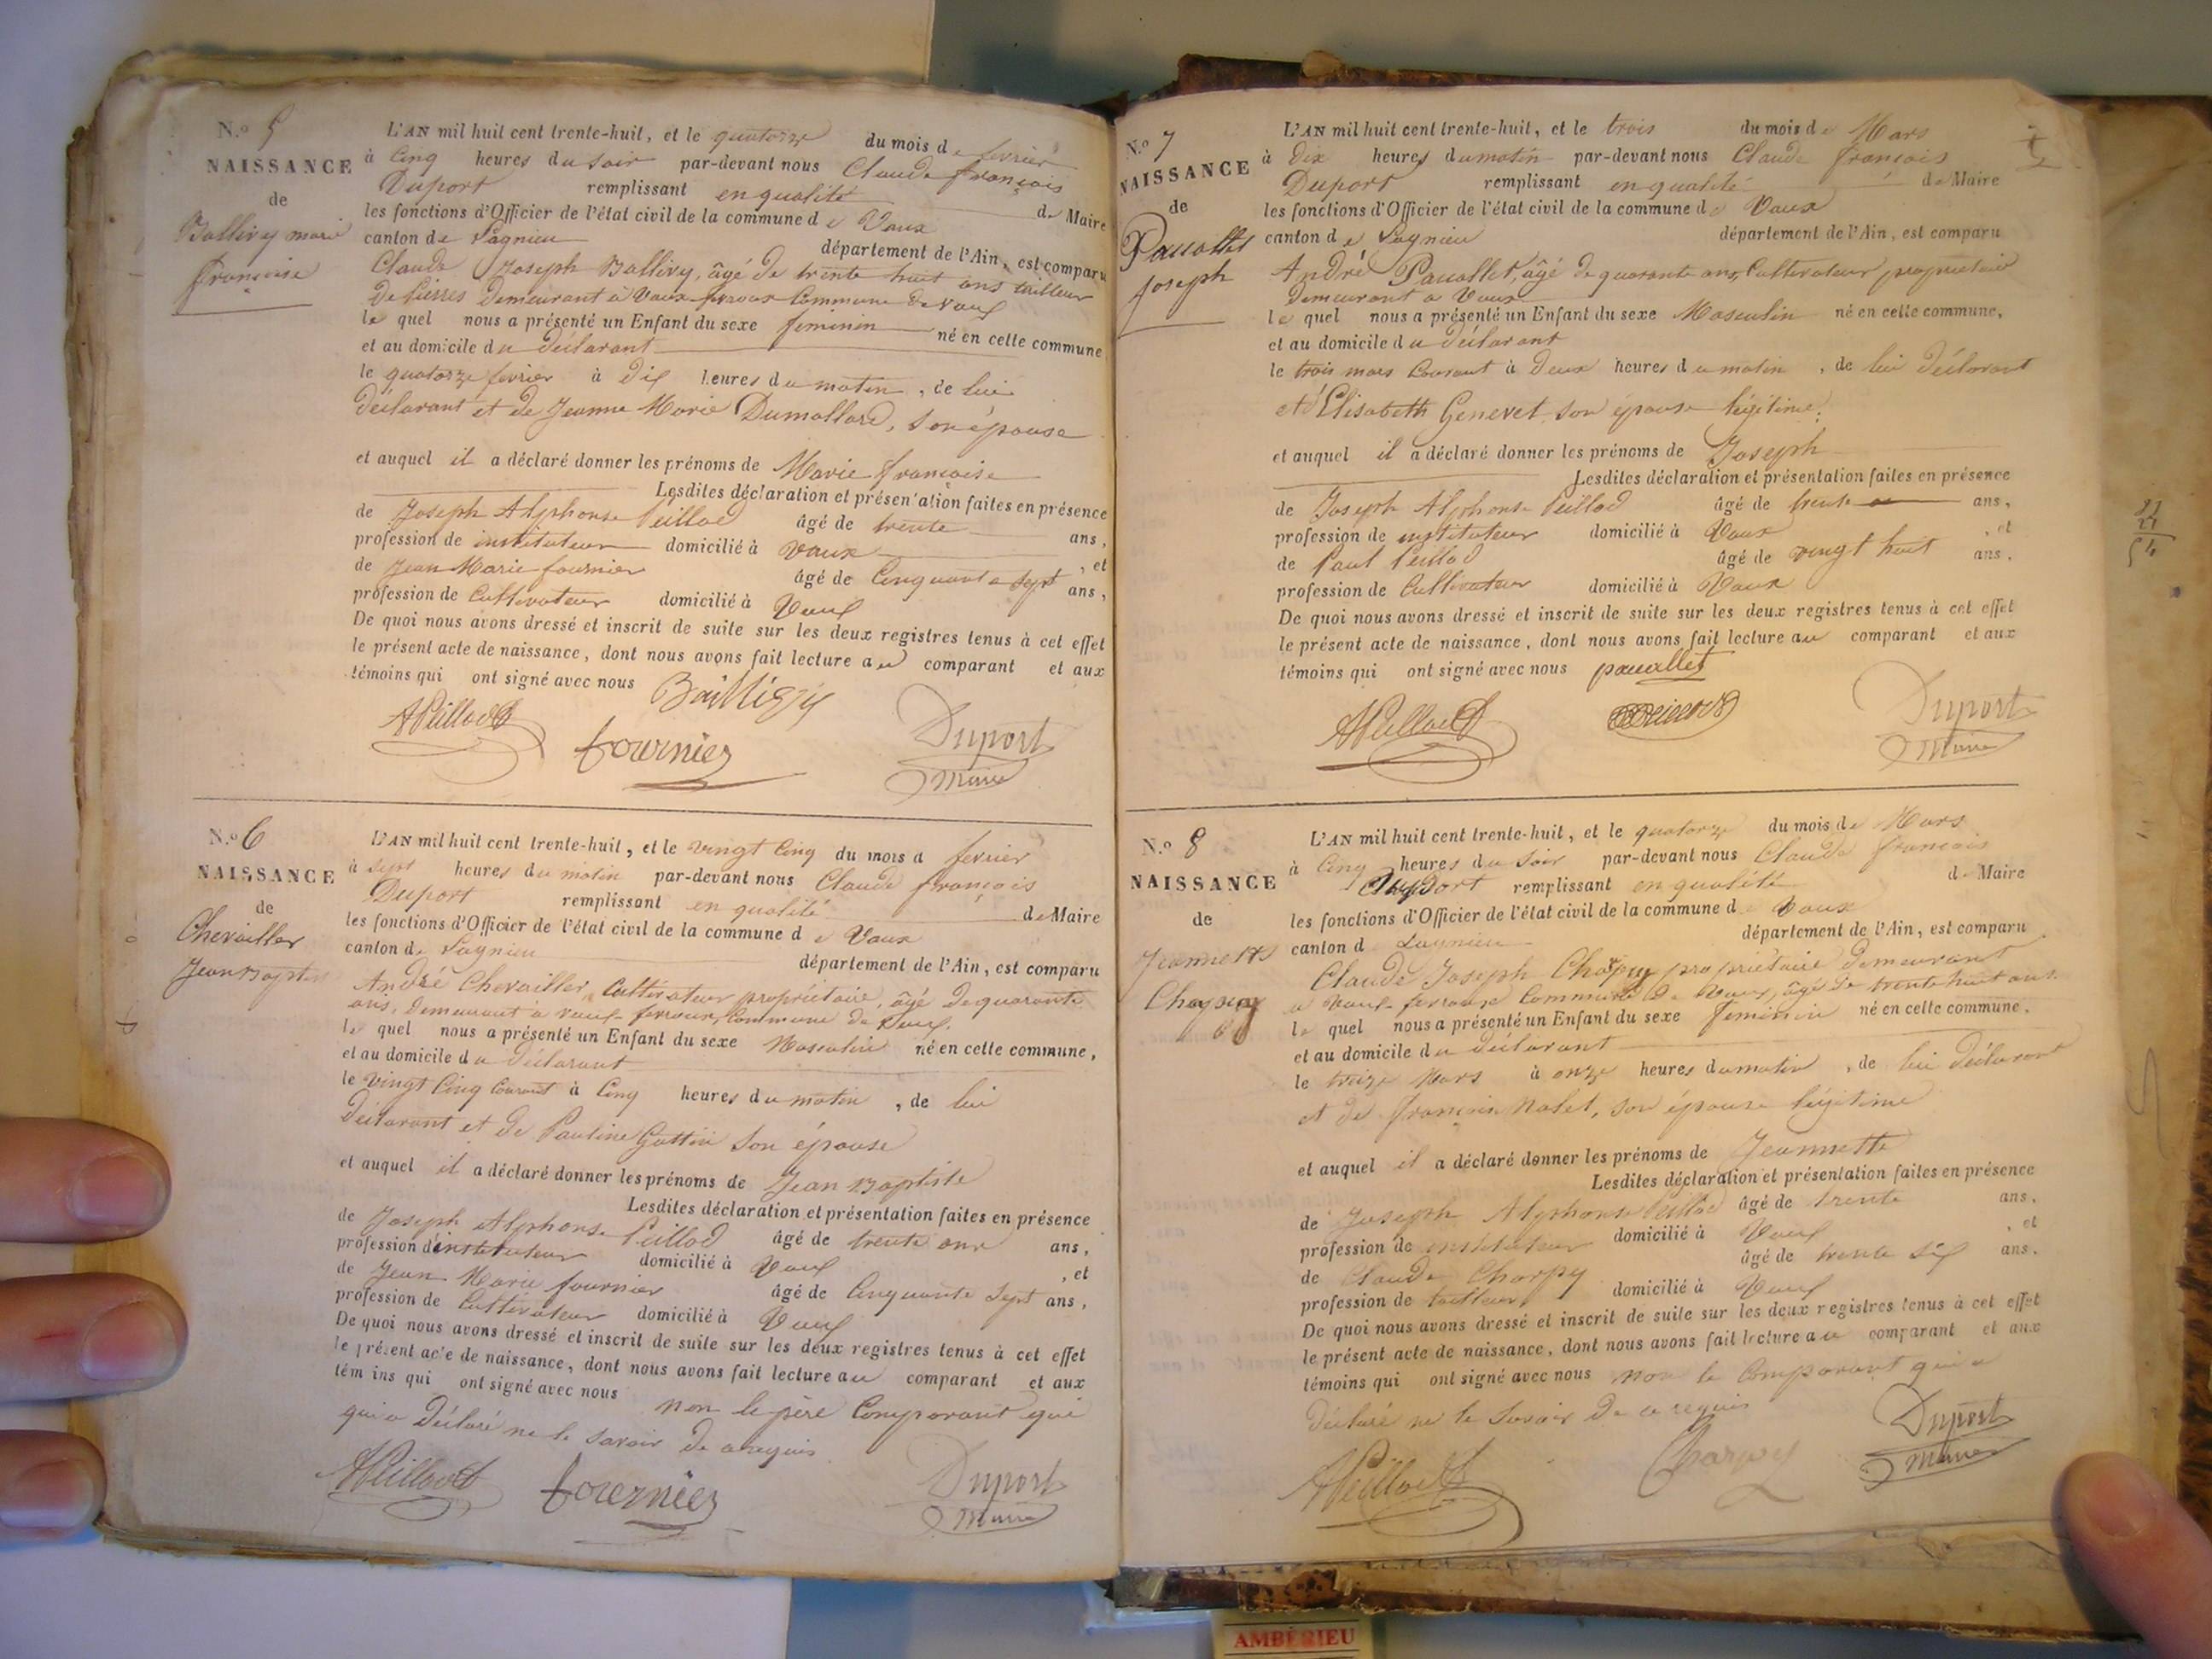 N.º 5
NAISSANCE
de
Ballivy marie
françoise
L'AN mil huit cent trente-huit, et le quatorze du mois de fevrier
à Cinq heures du soir par-devant nous Claude françois
Duport remplissant en qualité de Maire
les fonctions d'Officier de l'état civil de la commune de Vaux
canton de Lagnieu département de l'Ain, est comparu
Claude Joseph Ballivy, âgé de trente huit ans tailleur
De pierres Demeurant à Vaux-fevroux Commune de Vaux
le quel nous a présenté un Enfant du sexe feminin né en cette commune
et au domicile du Déclarant
le quatorze fevrier à Dix heures du matin, de lui
Déclarant et de Jeanne Marie Dumollard, son épouse
et auquel il a déclaré donner les prénoms de Marie françoise
Lesdites déclaration et présentation faites en présence
de Joseph Alphonse Peillod âgé de trente ans,
profession de instituteur domicilié à Vaux, et
de Jean Marie fournier âgé de Cinquante sept ans,
profession de Cultivateur domicilié à Vaux
De quoi nous avons dressé et inscrit de suite sur les deux registres tenus à cet effet
le présent acte de naissance, dont nous avons fait lecture au comparant et aux
témoins qui ont signé avec nous
APeillod fournier Duport
Maire
N.º 6
NAISSANCE
de
Chevailler
Jean Baptiste
L'AN mil huit cent trente-huit, et le vingt Cinq du mois d fevrier
à sept heures du matin par-devant nous Claude françois
Duport remplissant en qualité de Maire
les fonctions d'Officier de l'état civil de la commune de Vaux
canton de Lagnieu département de l'Ain, est comparu
André Chevailler, Cultivateur propriétaire, âgé de quarante
ans, Demeurant à Vaux-fevroux, Commune de Vaux,
le quel nous a présenté un Enfant du sexe Masculin né en cette commune,
et au domicile du Déclarant
le vingt Cinq Courant à Cinq heures du matin, de lui
Déclarant et de Pauline Gottin son épouse
et auquel il a déclaré donner les prénoms de Jean Baptiste
Lesdites déclaration et présentation faites en présence
de Joseph Alphonse Peillod âgé de trente ans,
profession d'instituteur domicilié à Vaux, et
de Jean Marie fournier âgé de Cinquante sept ans,
profession de Cultivateur domicilié à Vaux
De quoi nous avons dressé et inscrit de suite sur les deux registres tenus à cet effet
le présent acte de naissance, dont nous avons fait lecture au comparant et aux
témoins qui ont signé avec nous non le père Comparant qui
qui a Déclaré ne le savoir de ce requis
APeillod fournier Duport
Maire
N.º 7
NAISSANCE
de
Paucallet
Joseph
L'AN mil huit cent trente-huit, et le trois du mois de Mars
à Dix heures du matin par-devant nous Claude françois
Duport remplissant en qualité de Maire
les fonctions d'Officier de l'état civil de la commune de Vaux
canton de Lagnieu département de l'Ain, est comparu
André Paucallet, âgé de quarante ans, Cultivateur propriétaire
Demeurant à Vaux
le quel nous a présenté un Enfant du sexe Masculin né en cette commune,
et au domicile du Déclarant
le trois mars Courant à Deux heures du matin, de lui Déclarant
et d'Elisabeth Genevet, son épouse légitime.
et auquel il a déclaré donner les prénoms de Joseph
Lesdites déclaration et présentation faites en présence
de Joseph Alphonse Peillod âgé de trente ans,
profession de instituteur domicilié à Vaux, et
de Paul Peillod âgé de vingt huit ans,
profession de Cultivateur domicilié à Vaux
De quoi nous avons dressé et inscrit de suite sur les deux registres tenus à cet effet
le présent acte de naissance, dont nous avons fait lecture au comparant et aux
témoins qui ont signé avec nous paucallet
APeillod Duport
Maire
N.º 8
NAISSANCE
de
Jeannette
L'AN mil huit cent trente-huit, et le quatorze du mois de Mars
à Cinq heures du soir par-devant nous Claude françois
Duport remplissant en qualité de Maire
les fonctions d'Officier de l'état civil de la commune d Vaux
canton d Lagnieu département de l'Ain, est comparu
Claude Joseph Charpy propriétaire demeurant
à Vaux-fevroux Commune de Vaux, âgé de trente huit ans
le quel nous a présenté un Enfant du sexe feminin né en cette commune,
et au domicile du Déclarant
le treize Mars à onze heures du matin, de lui Déclarant
et de françoise Nalet, son épouse légitime
et auquel il a déclaré donner les prénoms de Jeannette
Lesdites déclaration et présentation faites en présence
de Joseph Alphonse Peillod âgé de trente ans,
profession de instituteur domicilié à Vaux, et
de Claude Charpy âgé de trente six ans,
profession de tailleur domicilié à Vaux
De quoi nous avons dressé et inscrit de suite sur les deux registres tenus à cet effet
le présent acte de naissance, dont nous avons fait lecture au comparant et aux
témoins qui ont signé avec nous non le Comparant qui a
Déclaré ne le savoir de ce requis
APeillod Charpy Duport
Maire
AMBÉRIEU